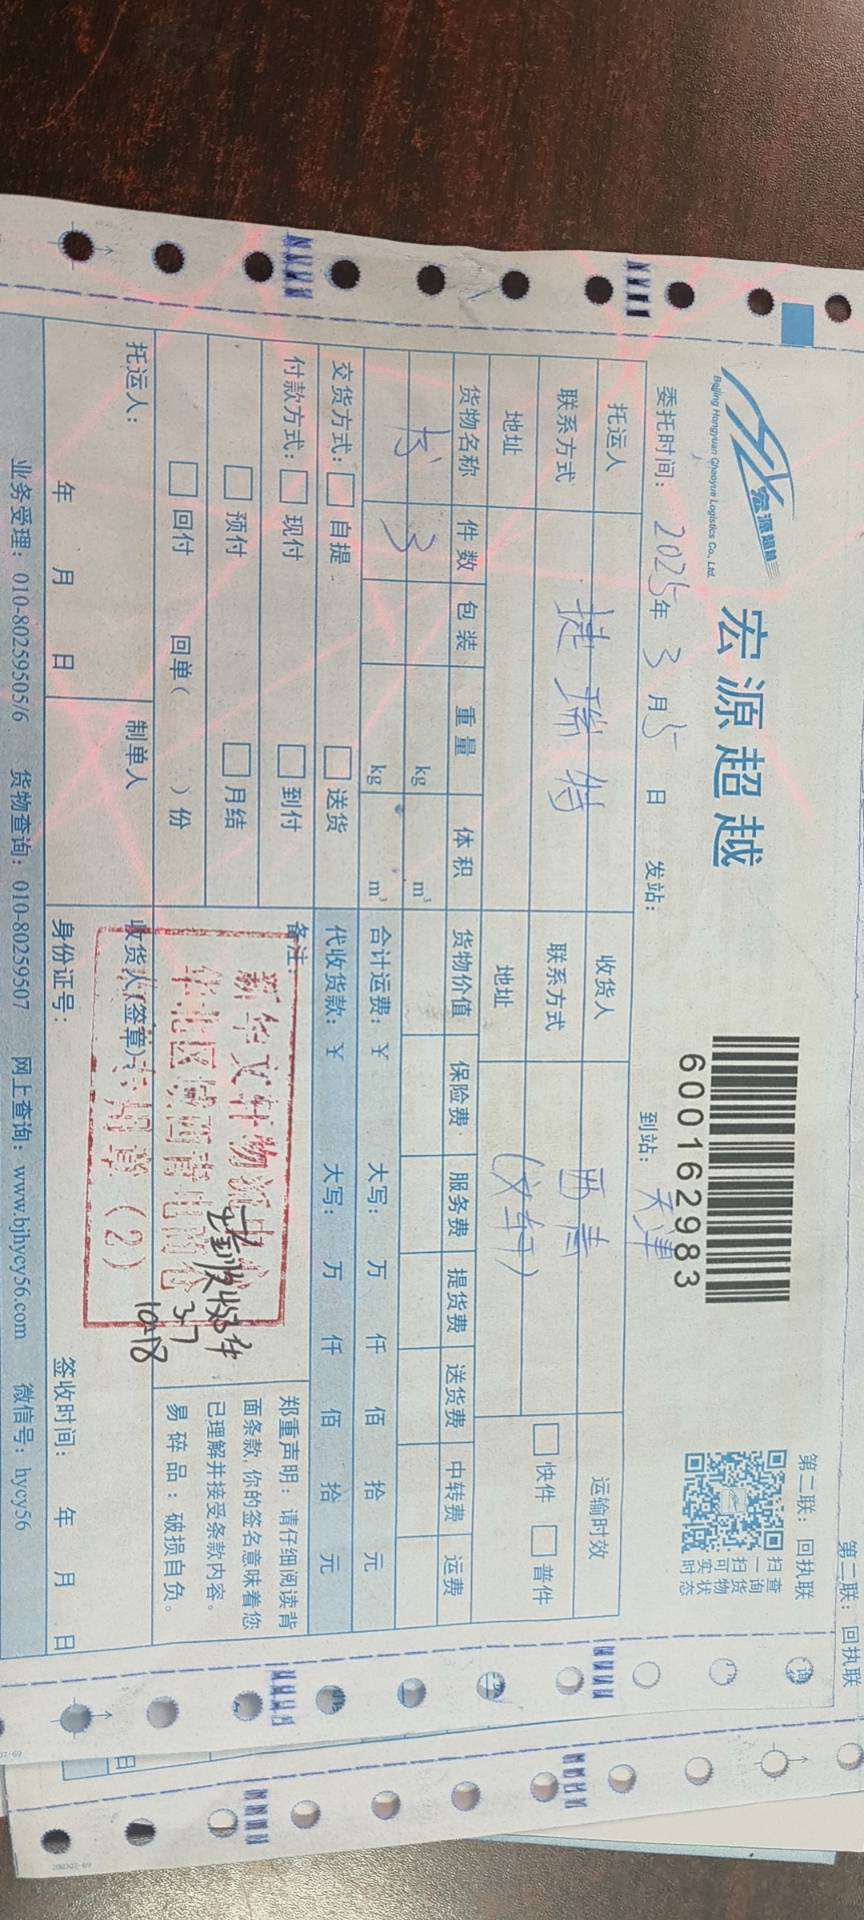 宏源超越
Beijing Hongyuan Chaoyue Logistics Co., Ltd.
宏源超越
600162983
第二联：回执联
第二联：回执联
扫查
一询
扫货
可物
实状
时态
委托时间：2025年3月5日 发站： 到站：天津
托运人 捷瑞特 收货人 西青 运输时效
联系方式 联系方式 快件 普件
地址 地址 (文轩)
货物名称 件数 包装 重量 体积 货物价值 保险费 服务费 提货费 送货费 中转费 运费
书 3 kg m³
kg m³ 合计运费：¥ 大写： 万 仟 佰 拾 元
交货方式： 自提 送货 代收货款：¥ 大写： 万 仟 佰 拾 元
付款方式： 现付 到付 备注：
预付 月结
回付 回单( )份
新华文轩物流
华北区
章（2）
3.7
10-18
郑重声明：请仔细阅读背
面条款，你的签名意味着您
已理解并接受条款内容。
易碎品：破损自负。
托运人： 制单人 收货人(签章)：
年 月 日 身份证号： 签收时间： 年 月 日
业务受理：010-80259505/6 货物查询：010-80259507 网上查询：www.bjhycy56.com 微信号：hycy56
日